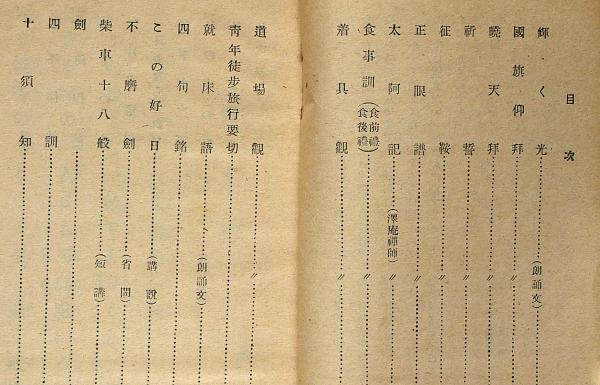 目次
輝く光………(朗誦文)………
國旗仰拜………〃………
曉天拜………〃………
祈誓………〃………
征鞍………〃………
正眼譜………〃………
太阿記………(澤庵禪師)………〃………
食事訓(食前禮 食後禮)………〃………
着具觀………〃………
道場觀………〃………
靑年徒步旅行要切………〃………
就床語………(朗誦文)………
四句銘………
この好日………(講說)………
不磨劍………(省間)………
柴車十八般………(短講)………
劍
四 訓………
十須知………